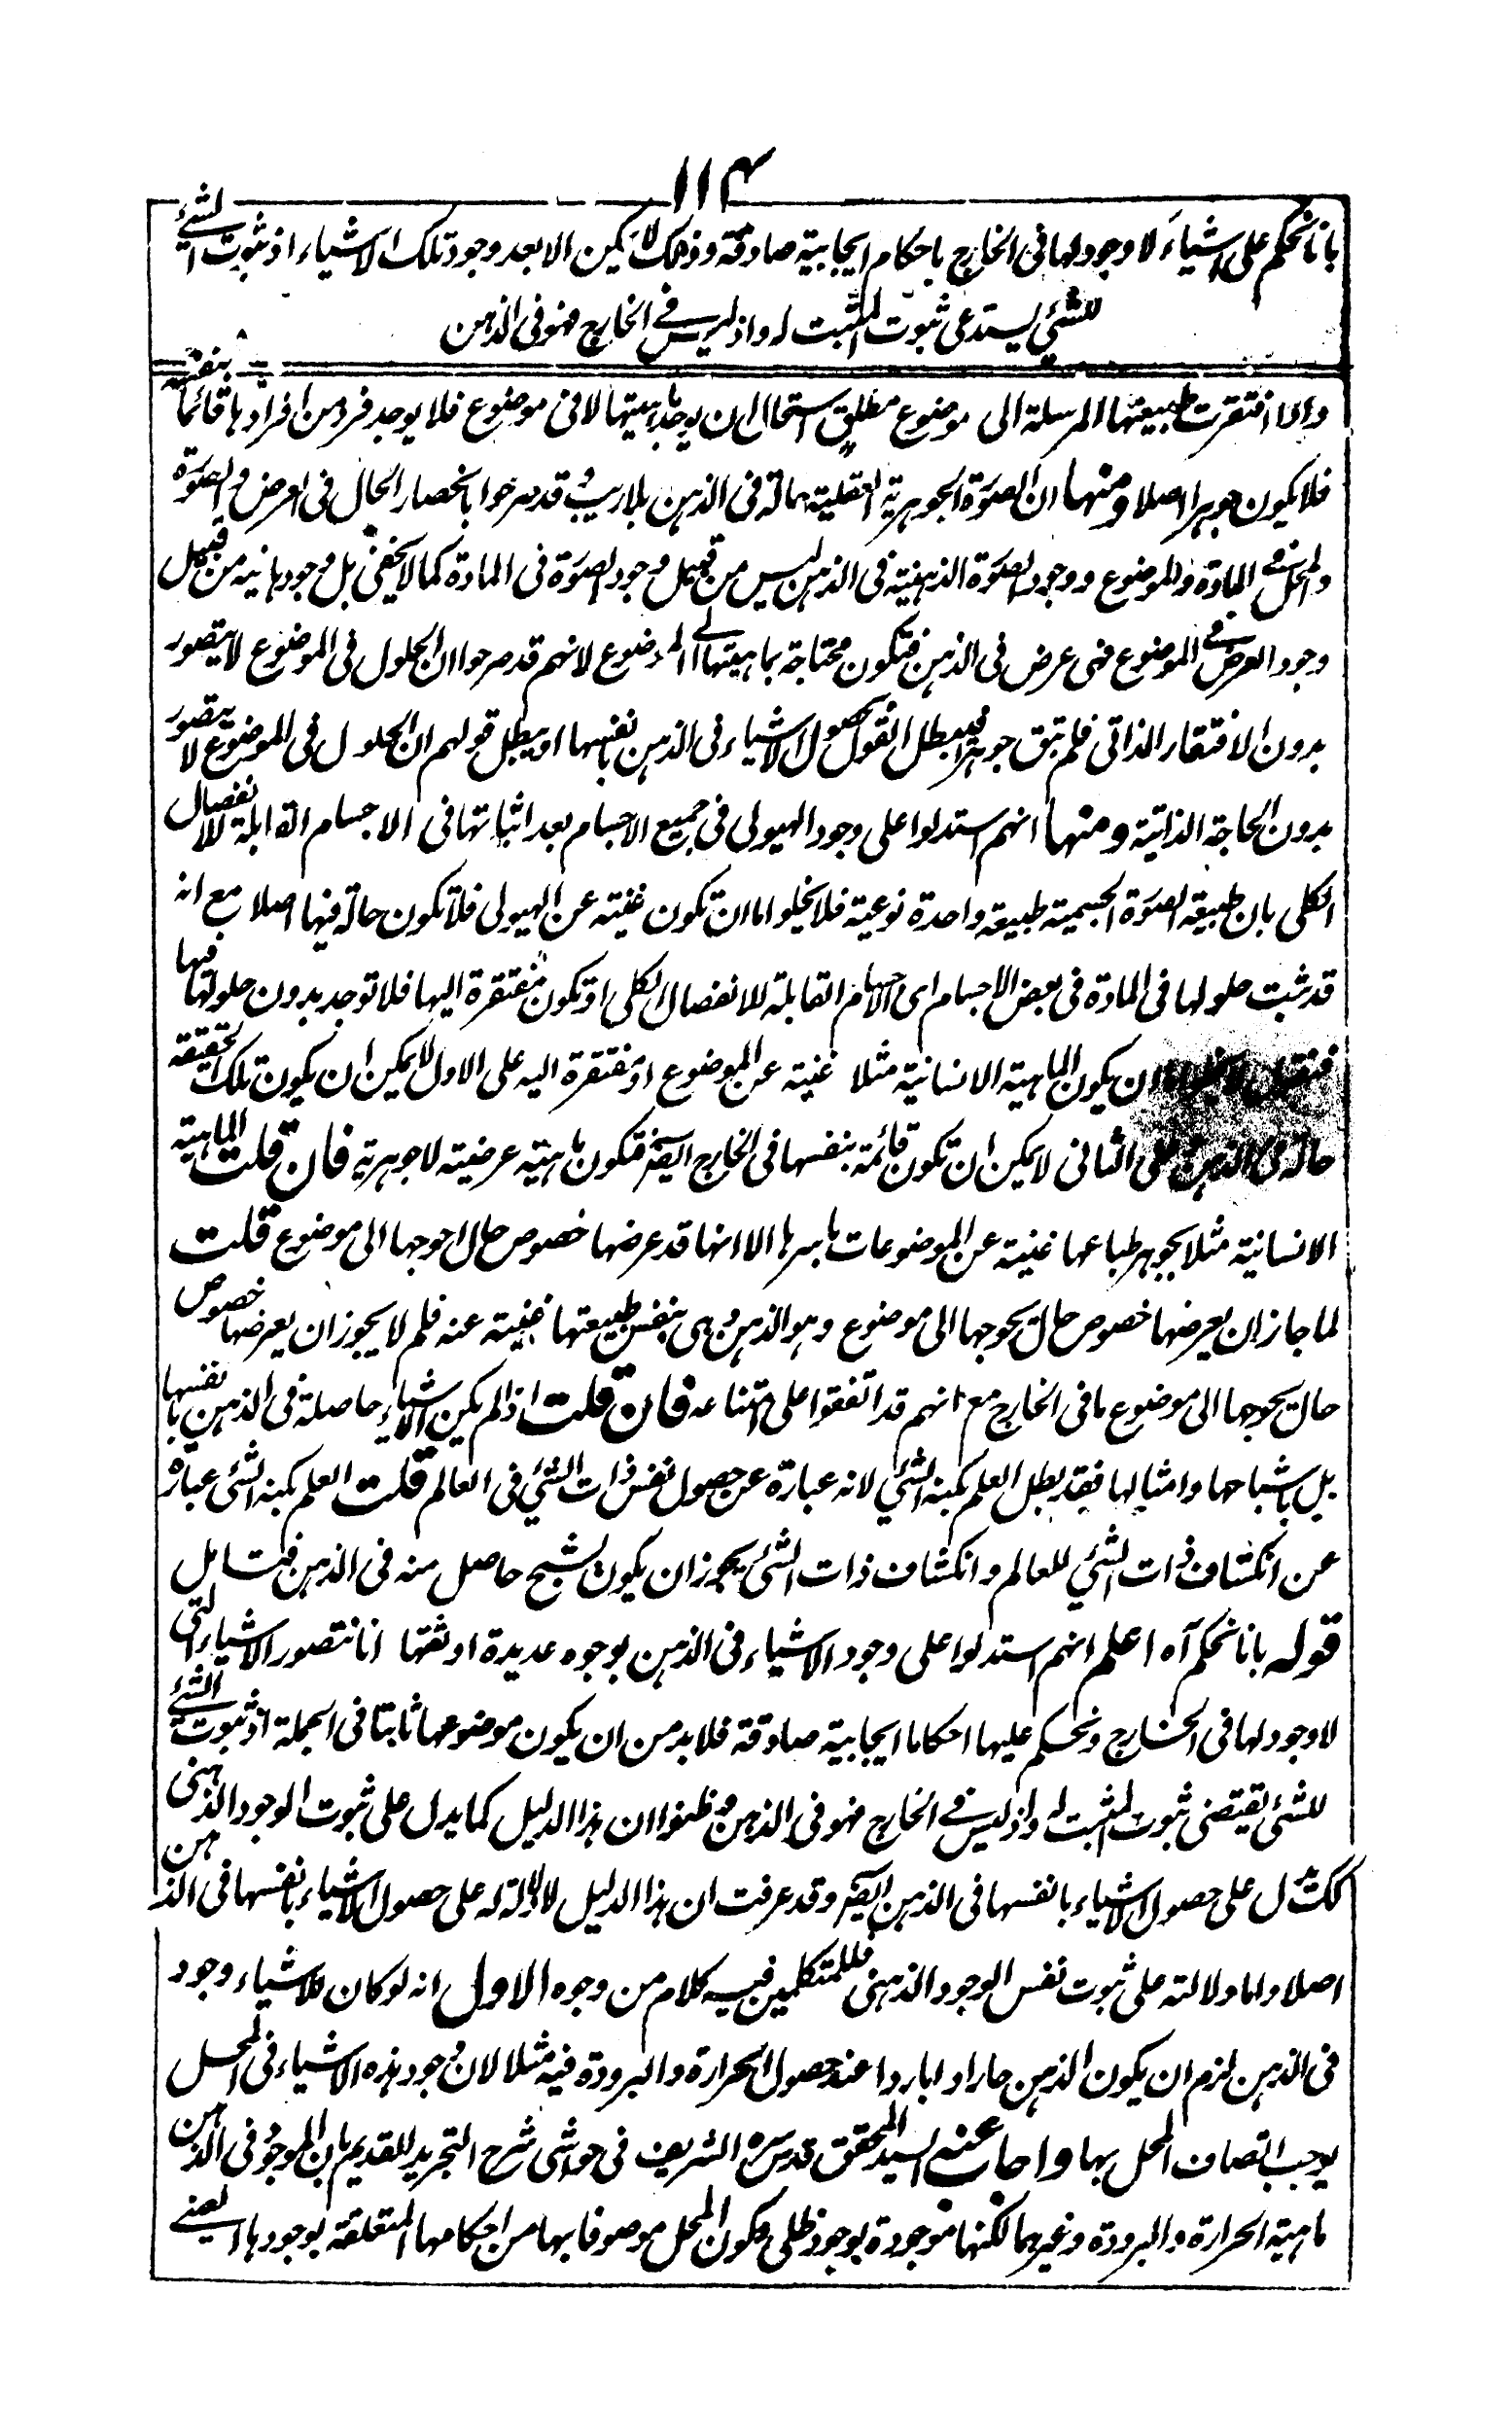 ١١٤
بانا نحكم على اشياءَ لا وجود لها فى الخارج باحكام ايجابية صادقة وذلك لا يمكن الا بعد وجود تلك الاشياء اذ ثبوت الشئ
للشئ يستدعى ثبوت المثبت له واذ ليس فى الخارج فهو فى الذهن
واذا افتقرت طبيعتها المرسلة الى موضوع مطلق استحال ان يوجد ماهيتها لا فى موضوع فلا يوجد فرد من افرادها قائما بنفسه
فلا يكون جوهرا اصلا ومنها ان الصورة الجوهرية العقلية حالة فى الذهن بلا ريب وقد صرحوا بانحصار الحال فى العرض والصورة
والمحل فى المادة والموضوع ووجود الصورة الذهنية فى الذهن ليس من قبيل وجود الصورة فى المادة كما لا يخفى بل وجودها فيه من قبيل
وجود العرض فى الموضوع فهى عرض فى الذهن فتكون محتاجة بماهيتها الى الموضوع لانهم قد صرحوا ان الحلول فى الموضوع لا يتصور
بدون الافتقار الذاتى فلم تبق جوهرا فيبطل القول بحصول الاشياء فى الذهن بانفسها او يبطل قولهم ان الحلول فى الموضوع لا يتصور
بدون الحاجة الذاتية ومنها انهم استدلوا على وجود الهيولى فى جميع الاجسام بعد اثباتها فى الاجسام القابلة للانفصال
الكلى بان طبيعة الصورة الجسمية طبيعة واحدة نوعية فلا يخلو اما ان تكون غنية عن الهيولى فلا تكون حالة فيها اصلا مع انه
قد ثبت حلولها فى المادة فى بعض الاجسام اى الاجسام القابلة للانفصال الكلى او تكون مفتقرة اليها فلا توجد بدون حلولها فيها
فنقول لا يخلو اما ان يكون الماهية الانسانية مثلا غنية عن الموضوع او مفتقرة اليه على الاول لا يمكن ان يكون تلك الحقيقة
حالة فى الذهن وعلى الثانى لا يمكن ان تكون قائمة بنفسها فى الخارج ايضا فتكون ماهية عرضية لا جوهرية فان قلت الماهية
الانسانية مثلا بجوهر طباعها غنية عن الموضوعات باسرها الا انها قد عرضها خصوص حال احوجها الى موضوع قلت
لما جاز ان يعرضها خصوص حال يحوجها الى موضوع وهو الذهن وهى بنفس طبيعتها غنية عنه فلم لا يجوز ان يعرضها خصوص
حال يحوجها الى موضوع ما فى الخارج مع انهم قد اتفقوا على امتناعه فان قلت اذا لم يكن الاشياء حاصلة فى الذهن بانفسها
بل باشباحها وامثالها فقد بطل العلم بكنه الشئ لانه عبارة عن حصول نفس ذات الشئ فى العالم قلت العلم بكنه الشئ عبارة
عن انكشاف ذات الشئ للعالم وانكشاف ذات الشئ يجوز ان يكون لشبح حاصل منه فى الذهن فتامل
قوله بانا نحكم آه اعلم انهم استدلوا على وجود الاشياء فى الذهن بوجوه عديدة اوثقها انا نتصور الاشياء التى
لا وجود لها فى الخارج ونحكم عليها احكاما ايجابية صادقة فلا بد من ان يكون موضوعها ثابتا فى الجملة اذ ثبوت الشئ
للشئ يقتضى ثبوت المثبت له واذ ليس فى الخارج فهو فى الذهن وظنوا ان هذا الدليل كما يدل على ثبوت الوجود الذهنى
كذلك يدل على حصول الاشياء بانفسها فى الذهن ايضا وقد عرفت ان هذا الدليل لا دلالة له على حصول الاشياء بانفسها فى الذهن
اصلا واما دلالته على ثبوت نفس الوجود الذهنى فللمتكلمين فيه كلام من وجوه الاول انه لو كان للاشياء وجود
فى الذهن لزم ان يكون الذهن حارا وباردا عند حصول الحرارة والبرودة فيه مثلا لان وجود هذه الاشياء فى المحل
يوجب اتصاف المحل بها واجاب عنه السيد المحقق قدس سره الشريف فى حواشى شرح التجريد القديم بان الموجود فى الذهن
ماهية الحرارة والبرودة وغيرهما لكنها موجودة بوجود ظلى وكون المحل موصوفا بها من احكامها المتعلقة بوجودها العينى